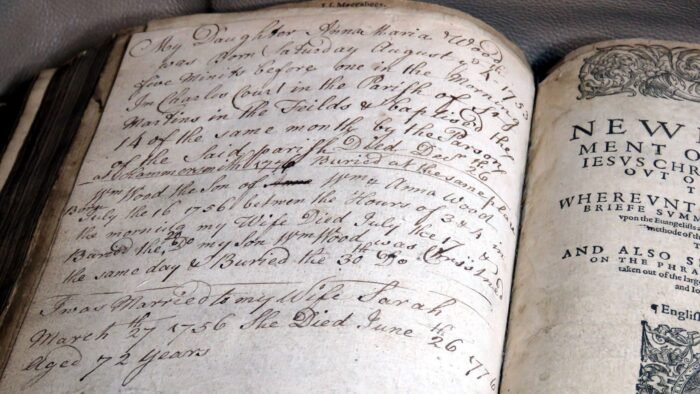 II. Maccabees.
My Daughter Anna Maria Wood
was Born Saturday August 1753
five Minits before one in the Morning
In Charles Court in the Parish of St
Martins in the Feilds & baptized the
14 of the same month by the Parson
of the Said parish Died Decr 26
at Hammersmith Buried at the same place
Wm Wood the Son of Wm & Anna Wood
Born July the 16 1756 between the Hours of 3 & 4 in
the morning my Wife Died July the 17 &
Buried the 20 Do my Son Wm Wood was
the same day & Buried the 30 Do
I was Married to my Wife Sarah
March 27th 1756 She Died June 26th 1776
Aged 72 Years
NEW
MENT O
IESVS CHR
OUT O
WHEREVNT
BRIEFE SVM
vpon the Euangelists a
methode of th
AND ALSO S
ON THE PHRA
taken out of the larg
and Io
¶ Englis